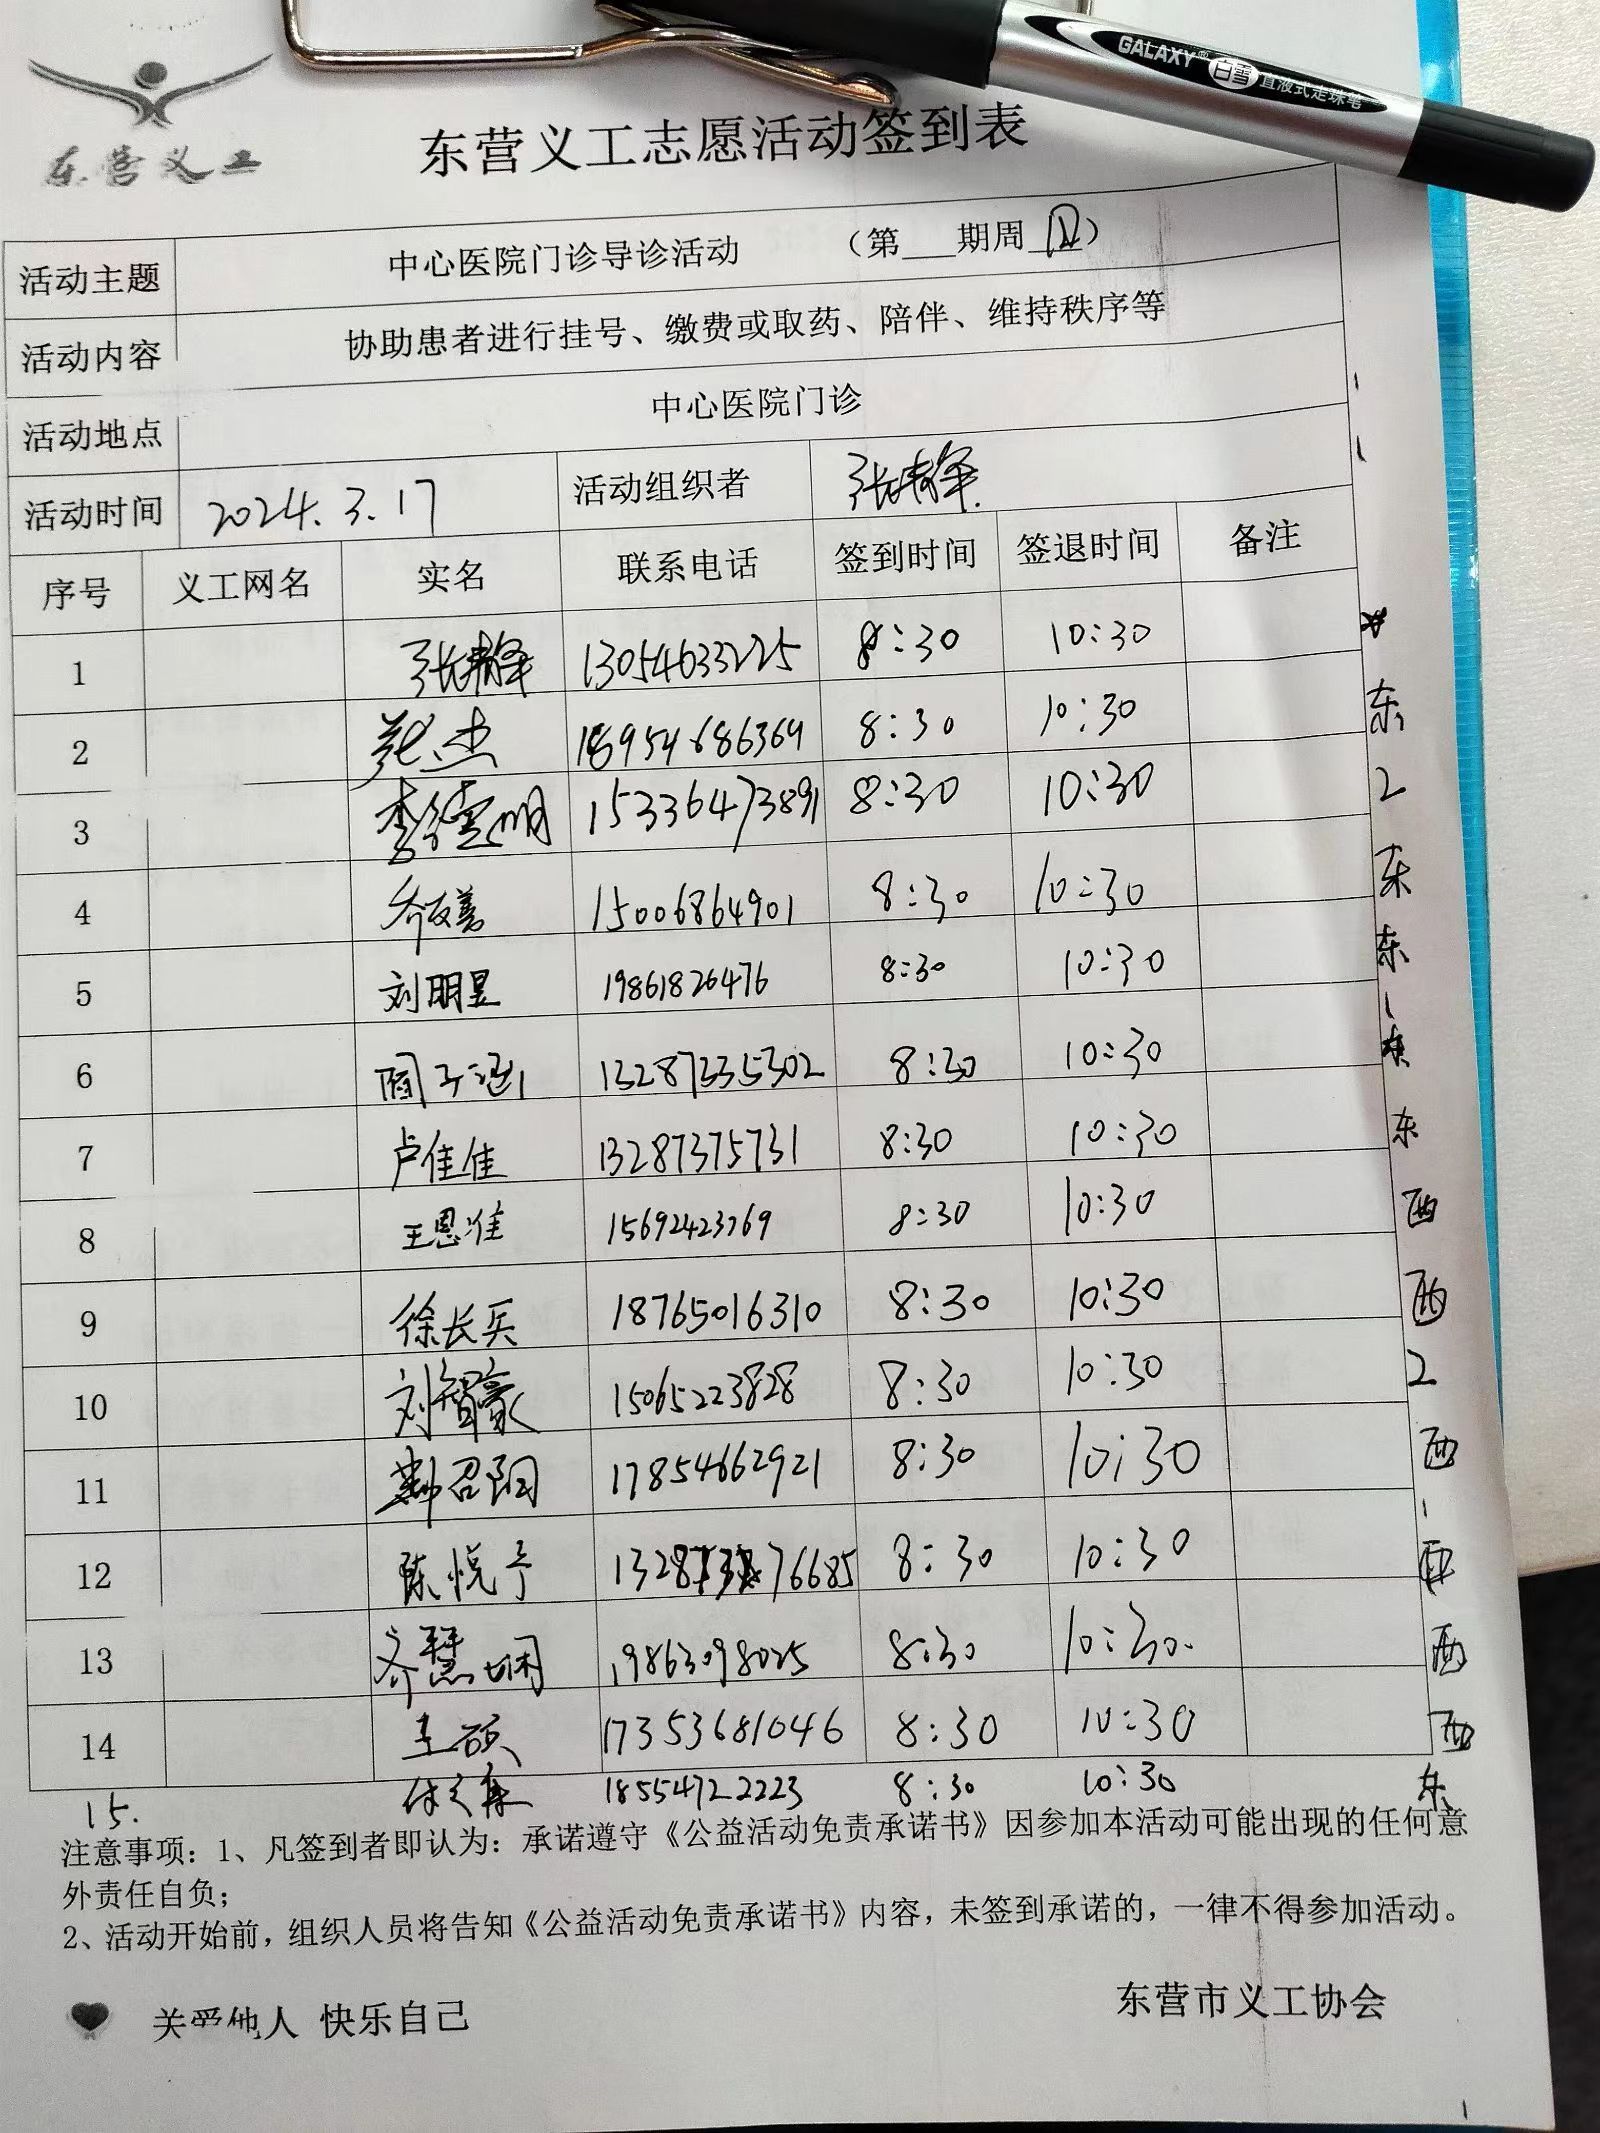 GALAXY 白雪 直液式走珠笔
东营义工
东营义工志愿活动签到表
活动主题 中心医院门诊导诊活动 （第___期周日）
活动内容 协助患者进行挂号、缴费或取药、陪伴、维持秩序等
活动地点 中心医院门诊
活动时间 2024.3.17 活动组织者
序号 义工网名 实名 联系电话 签到时间 签退时间 备注
1 13054633225 8:30 10:30
2 18954686369 8:30 10:30 东
3 15336473891 8:30 10:30 2
4 乔友善 15006864901 8:30 10:30 东
5 刘明昱 19861826476 8:30 10:30 东
6 周子涵 13287335302 8:30 10:30 东
7 卢佳佳 13287375731 8:30 10:30 东
8 王恩淮 15692423769 8:30 10:30 西
9 徐长兵 18765016310 8:30 10:30 西
10 刘智豪 15065223828 8:30 10:30 2
11 召阳 17854662921 8:30 10:30 西
12 陈悦宁 8:30 10:30 西
13 齐慧娴 19863098025 8:30 10:30 西
14 王硕 17353681046 8:30 10:30 西
15. 18554722223 8:30 10:30 东
注意事项：1、凡签到者即认为：承诺遵守《公益活动免责承诺书》因参加本活动可能出现的任何意
外责任自负；
2、活动开始前，组织人员将告知《公益活动免责承诺书》内容，未签到承诺的，一律不得参加活动。
关爱他人 快乐自己
东营市义工协会